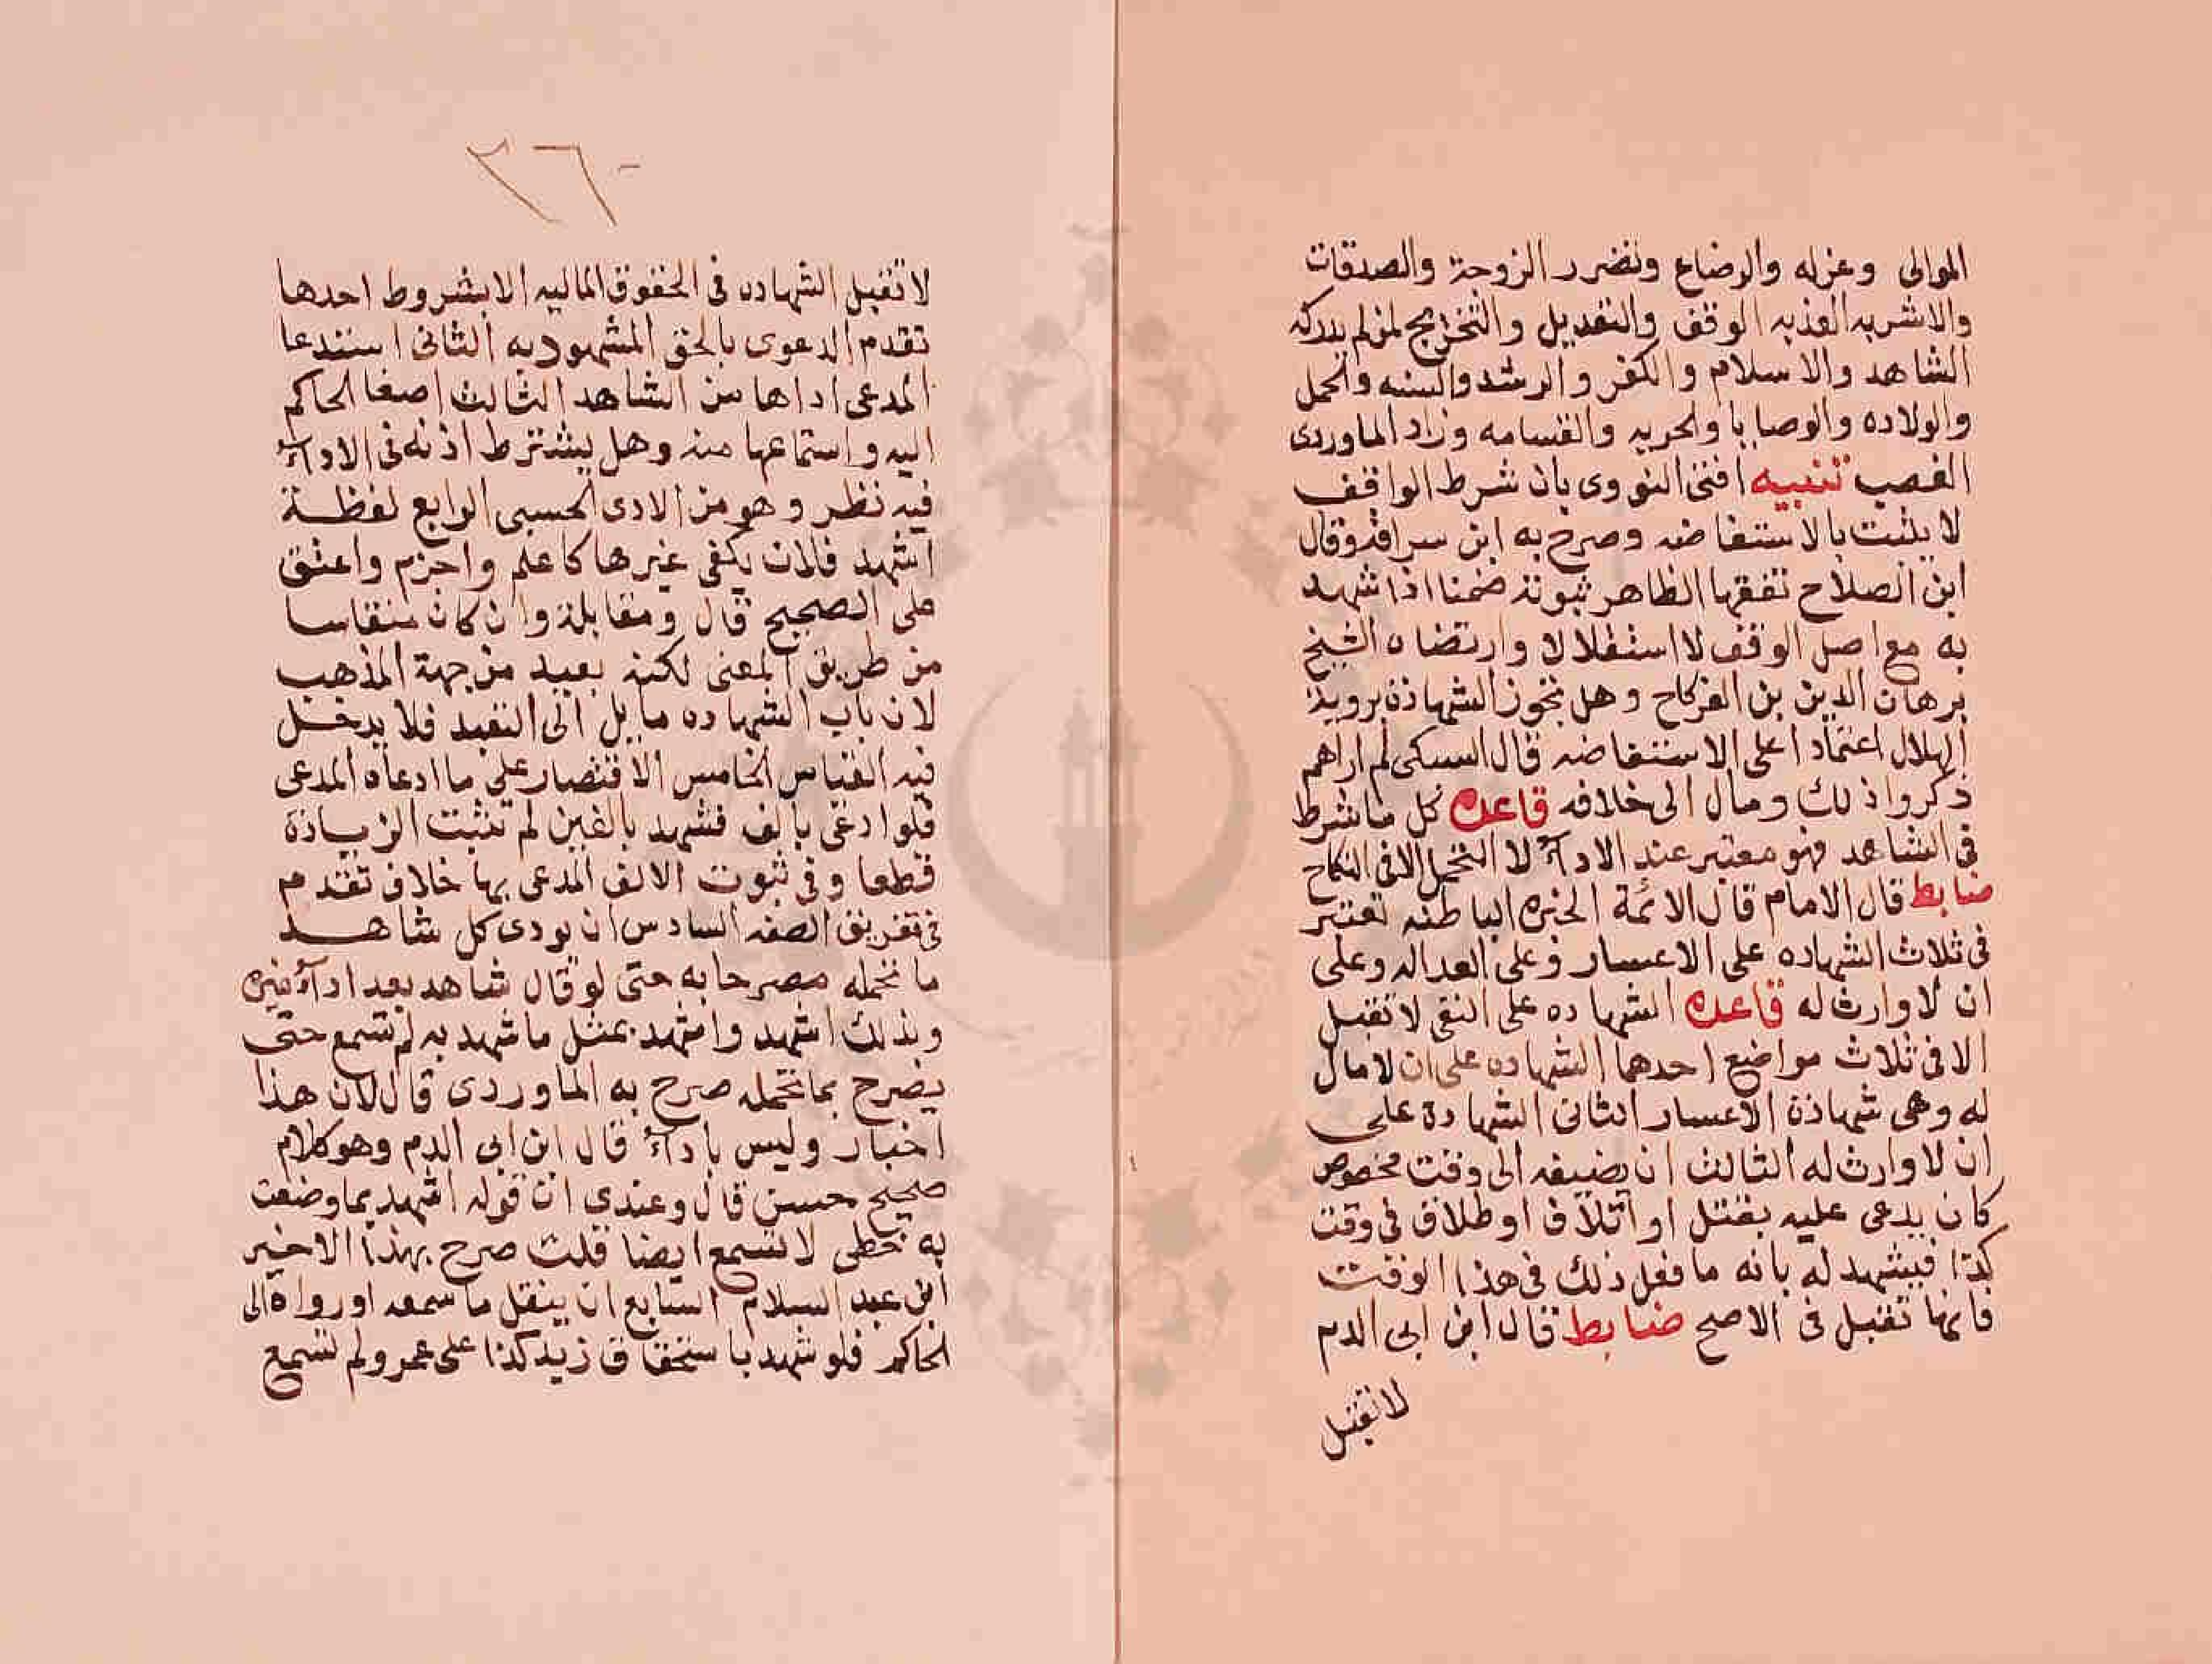 الموالى وعزله والرضاع وتضرر الزوجة والصدقات
والاشربه القذبه الوقف والتعديل والتخريج لمن لم يدركه
الشاهد والاسلام والكفر والرشد والسفه والحمل
والولاده والوصايا والحريه والقسامه وزاد الماوردى
الغصب تنبيه افتى النووى بان شرط الواقف
لا يثبت بالاستفاضه وصرح به ابن سراقة وقال
ابن الصلاح تفقها الظاهر ثبوته ضمنا اذا شهد
به مع اصل الوقف لا استقلالا وارتضاه الشيخ
برهان الدين بن الفركاح وهل تجوز الشهادة بروية
الهلال اعتمادا على الاستفاضه قال السبكى لم ارهم
ذكروا ذلك ومال الى خلافه قاعدة كل ما شرط
فى الشاهد فهو معتبر عند الادآء لا التحمل الا فى النكاح
ضابط قال الامام قال الائمة الخبره الباطنه تعتبر
فى ثلاث الشهاده على الاعسار وعلى العداله وعلى
ان لا وارث له قاعدة الشهاده على النفى لا تقبل
الا فى ثلاث مواضع احدها الشهاده على ان لا مال
له وهى شهادة الاعسار الثانى الشهادة على
ان لا وارث له الثالث ان يضيفه الى وقت مخصوص
كان يدعى عليه بقتل او اتلاف او طلاق فى وقت
كذا فيشهد له بانه ما فعل ذلك فى هذا الوقت
فانها تقبل فى الاصح ضابط قال ابن ابى الدم
لا تقبل
٢٦٠
لا تقبل الشهاده فى الحقوق الماليه الا بشروط احدها
تقدم الدعوى بالحق المشهود به الثانى استدعا
المدعى اداها من الشاهد الثالث اصغا الحاكم
اليه واستماعها منه وهل يشترط اذنه فى الادآء
فيه نظر وهو من الادى الحسبى الرابع لفظة
اشهد فالان يكفى غيرها كاعلم واجزم واعتق
على الصحيح قال ومقابلة وان كان منقاسا
من طريق المعنى لكنه بعيد من جهة المذهب
لان باب الشهاده مايل الى التعبد فلا يدخل
فيه القياس الخامس الاقتصار على ما ادعاه المدعى
فلو ادعى بالف فشهد بالفين لم تثبت الزيادة
قطعا وفى ثبوت الالف المدعى بها خلاف تقدم
فى تفريق الصفه السادس ان يودى كل شاهد
ما تحمله مصرحا به حتى لو قال شاهد بعد ادآء غيره
وبذلك اشهد واشهد بمثل ما شهد به لم تسمع حتى
يصرح بما تحمله صرح به الماوردى قال لان هذا
اخبار وليس بادآء قال ابن ابى الدم وهو كلام
صحيح حسن قال وعندى ان قوله اشهد بما وضعت
به خطى لا تسمع ايضا قلت صرح بهذا الاخير
ابن عبد السلام السابع ان ينقل ما سمعه او رواه الى
الحاكم فلو شهد باستحقاق زيد كذا على عمر ولم تسمع